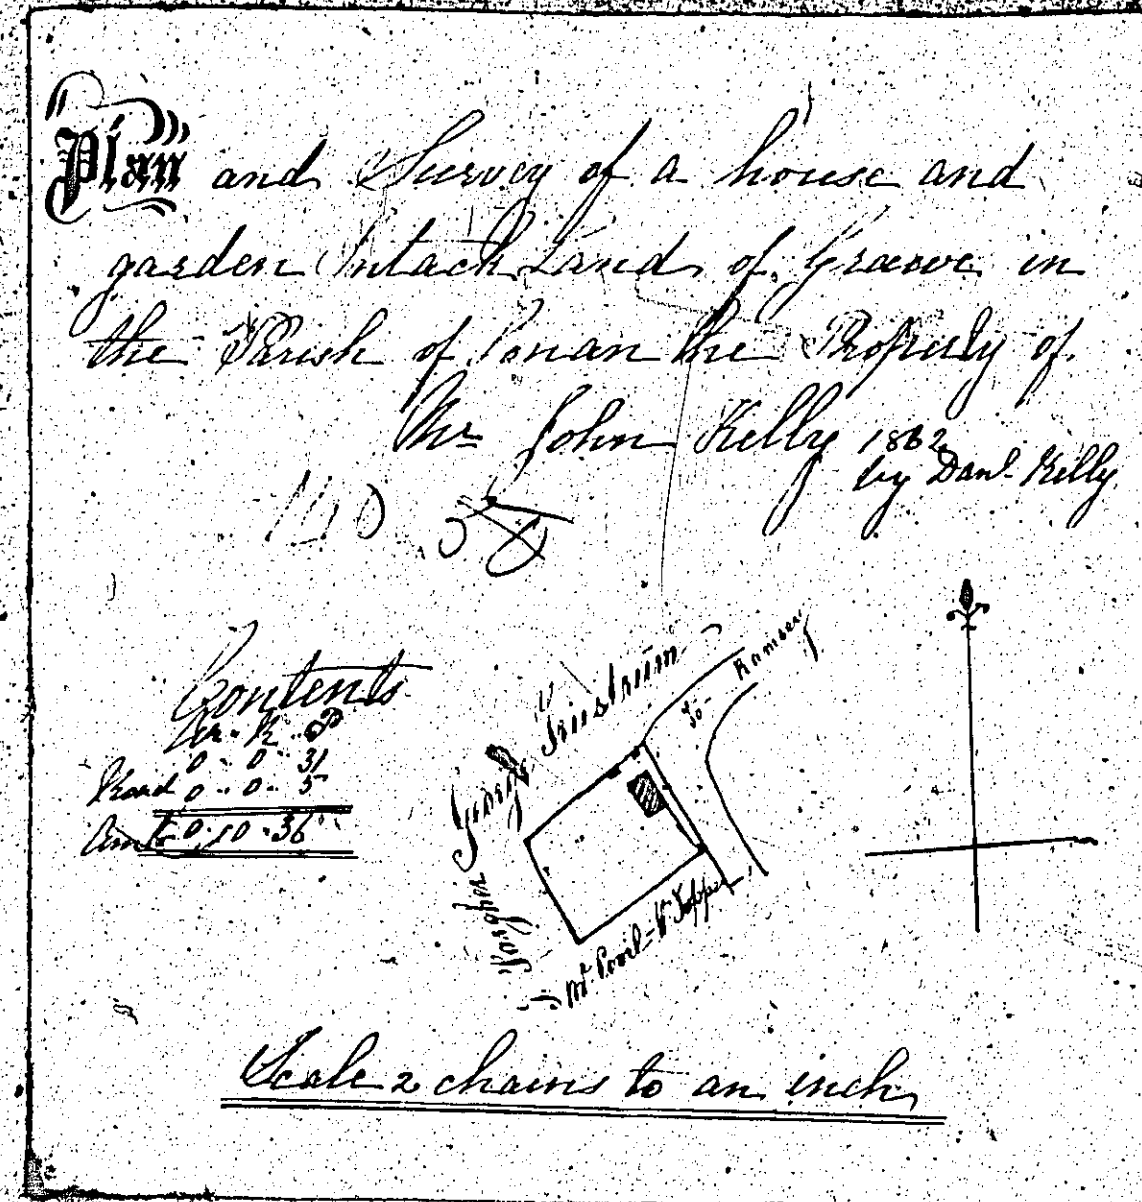 Plan and Survey of a house and
garden Intack Land of Grawe in
the Parish of Conan the Property of
Mr John Kelly 1862
by Danl. Kelly
140
Contents
Acr. R. P
0 .. 0 .. 31
Road 0 .. 0 .. 5
Amt 0 .. 0 .. 36
George
To Ramsey
Scale 2 chains to an inch